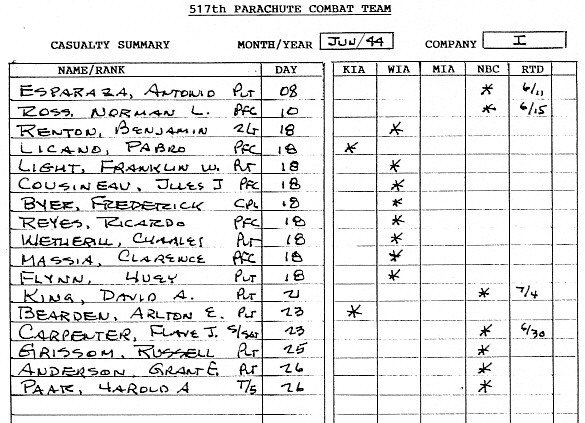 517th PARACHUTE COMBAT TEAM
CASUALTY SUMMARY MONTH/YEAR JUN/44 COMPANY I
NAME/RANK DAY KIA WIA MIA NBC RTD
ESPARAZA, ANTONIO PVT 08 * 6/11
ROSS, NORMAN L. PFC 10 * 6/15
RENTON, BENJAMIN 2LT 18 *
LICANO, PABRO PFC 18 *
LIGHT, FRANKLIN W. PVT 18 *
COUSINEAU, JULES J PFC 18 *
BYER, FREDERICK CPL 18 *
REYES, RICARDO PFC 18 *
WETHERILL, CHARLES PVT 18 *
MASSIA, CLARENCE PFC 18 *
FLYNN, HUEY PVT 18 *
KING, DAVID A. PVT 21 * 7/4
BEARDEN, ARLTON E. PVT 23 *
CARPENTER, FLAVE J. S/SGT 23 * 6/30
GRISSOM, RUSSELL PVT 25 *
ANDERSON, GRANT E. PVT 26 *
PAAR, HAROLD A T/5 26 *